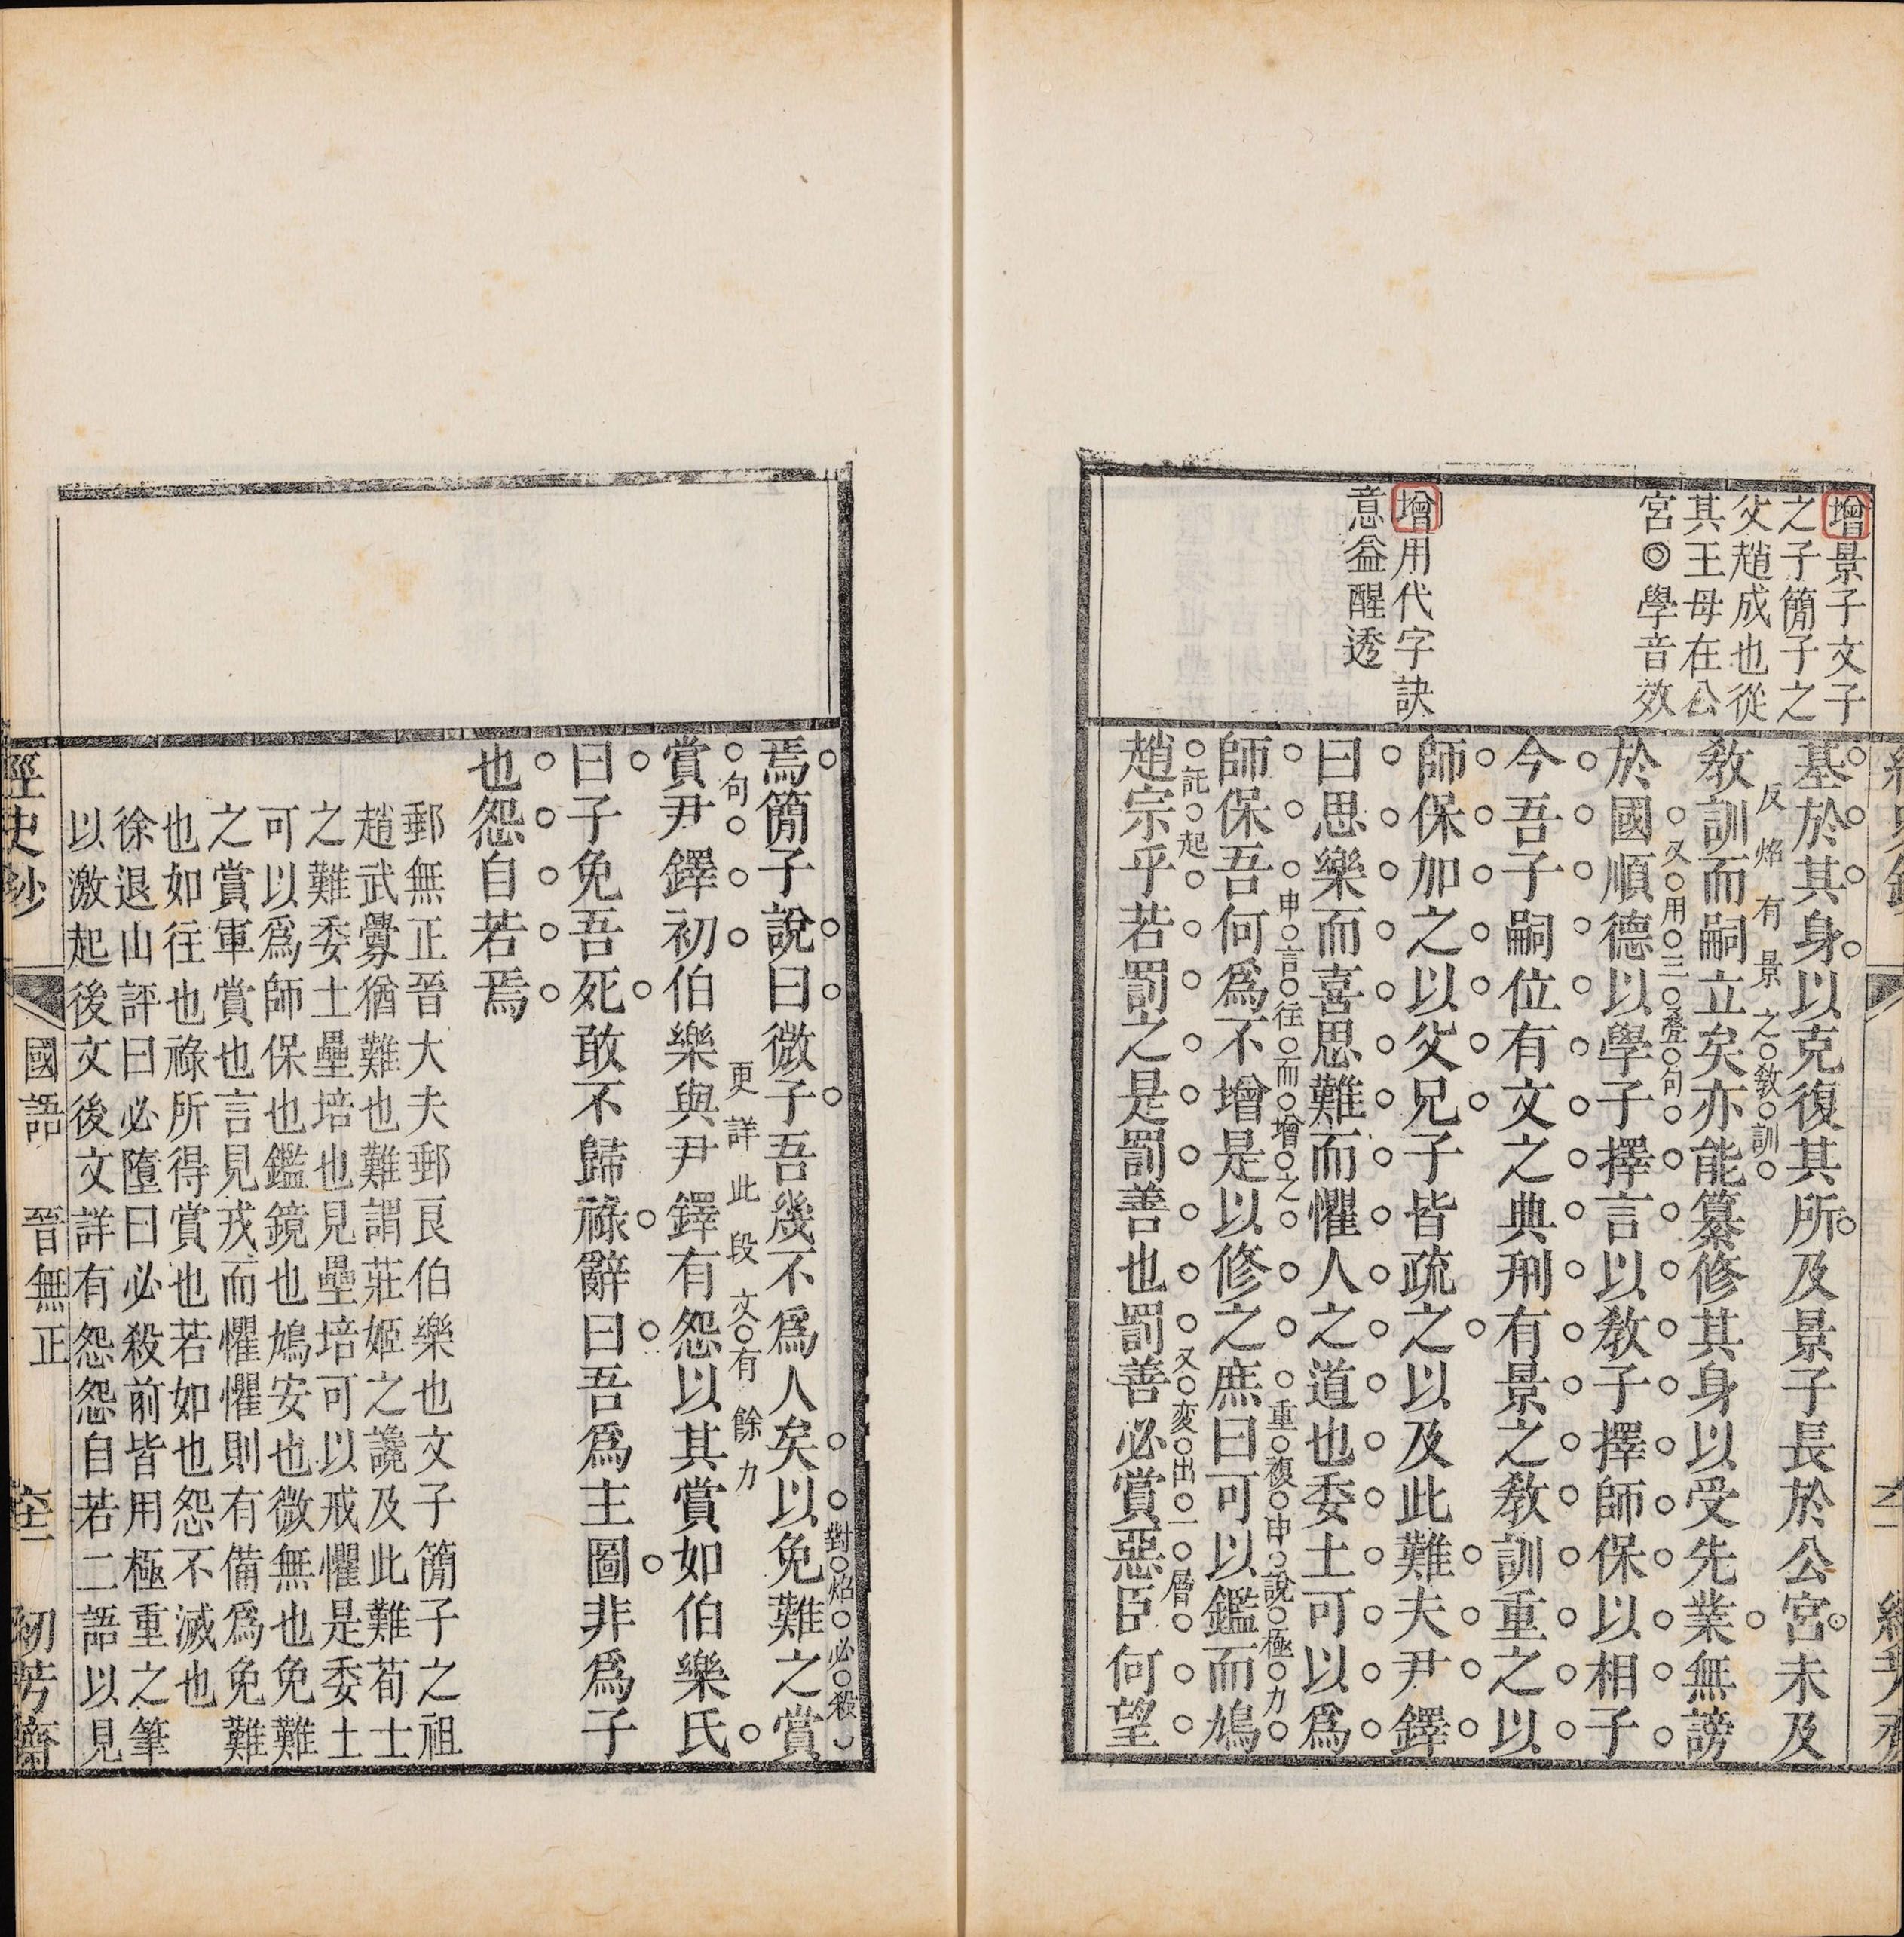 增景子文子
之子簡子之
父趙成也從
其王母在公
宮◎學音效
增用代字訣
意益醒透
基於其身以克復其所及景子長於公宮未及
反焰有景之教訓
教訓而嗣立矣亦能纂修其身以受先業無謗
又用三叠句
於國順德以學子擇言以教子擇師保以相子
今吾子嗣位有文之典刑有景之教訓重之以
師保加之以父兄子皆疏之以及此難夫尹鐸
曰思樂而喜思難而懼人之道也委土可以為
申言往而增之重複申說極力
師保吾何為不增是以修之庶曰可以鑑而鳩
託起又変出一層
趙宗乎若罰之是罰善也罰善必賞惡臣何望
對焰必殺
焉簡子說曰微子吾幾不為人矣以免難之賞
句更詳此段文有餘力
賞尹鐸初伯樂與尹鐸有怨以其賞如伯樂氏
曰子免吾死敢不歸祿辭曰吾為主圖非為子
也怨自若焉
郵無正晉大夫郵良伯樂也文子簡子之祖
趙武釁猶難也難謂莊姬之讒及此難荀士
之難委土壘培也見壘培可以戒懼是委土
可以為師保也鑑鏡也鳩安也微無也免難
之賞軍賞也言見戎而懼懼則有備為免難
也如往也祿所得賞也若如也怨不滅也
徐退山評曰必墮曰必殺前皆用極重之筆
以激起後文後文詳有怨怨自若二語以見
經史鈔
國語
晉無正
初芳齋